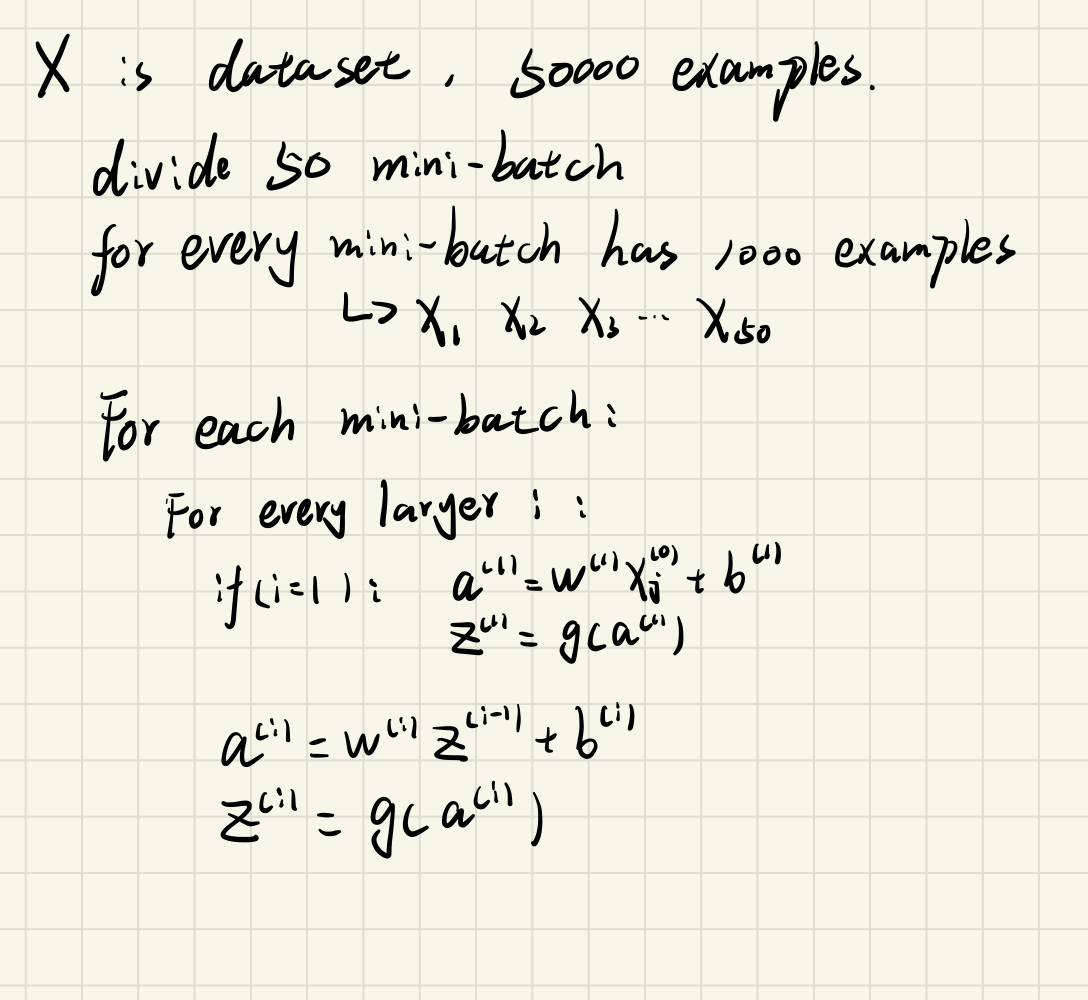 X is dataset, 50000 examples.
divide 50 mini-batch
for every mini-batch has 1000 examples
↳ X₁ X₂ X₃ ... X₅₀
For each mini-batch:
For every larger i :
if(i=1): a⁽¹⁾ = w⁽¹⁾ Xⱼ⁽⁰⁾ + b⁽¹⁾
z⁽¹⁾ = g(a⁽¹⁾)
a⁽ⁱ⁾ = w⁽ⁱ⁾ z⁽ⁱ⁻¹⁾ + b⁽ⁱ⁾
z⁽ⁱ⁾ = g(a⁽ⁱ⁾)